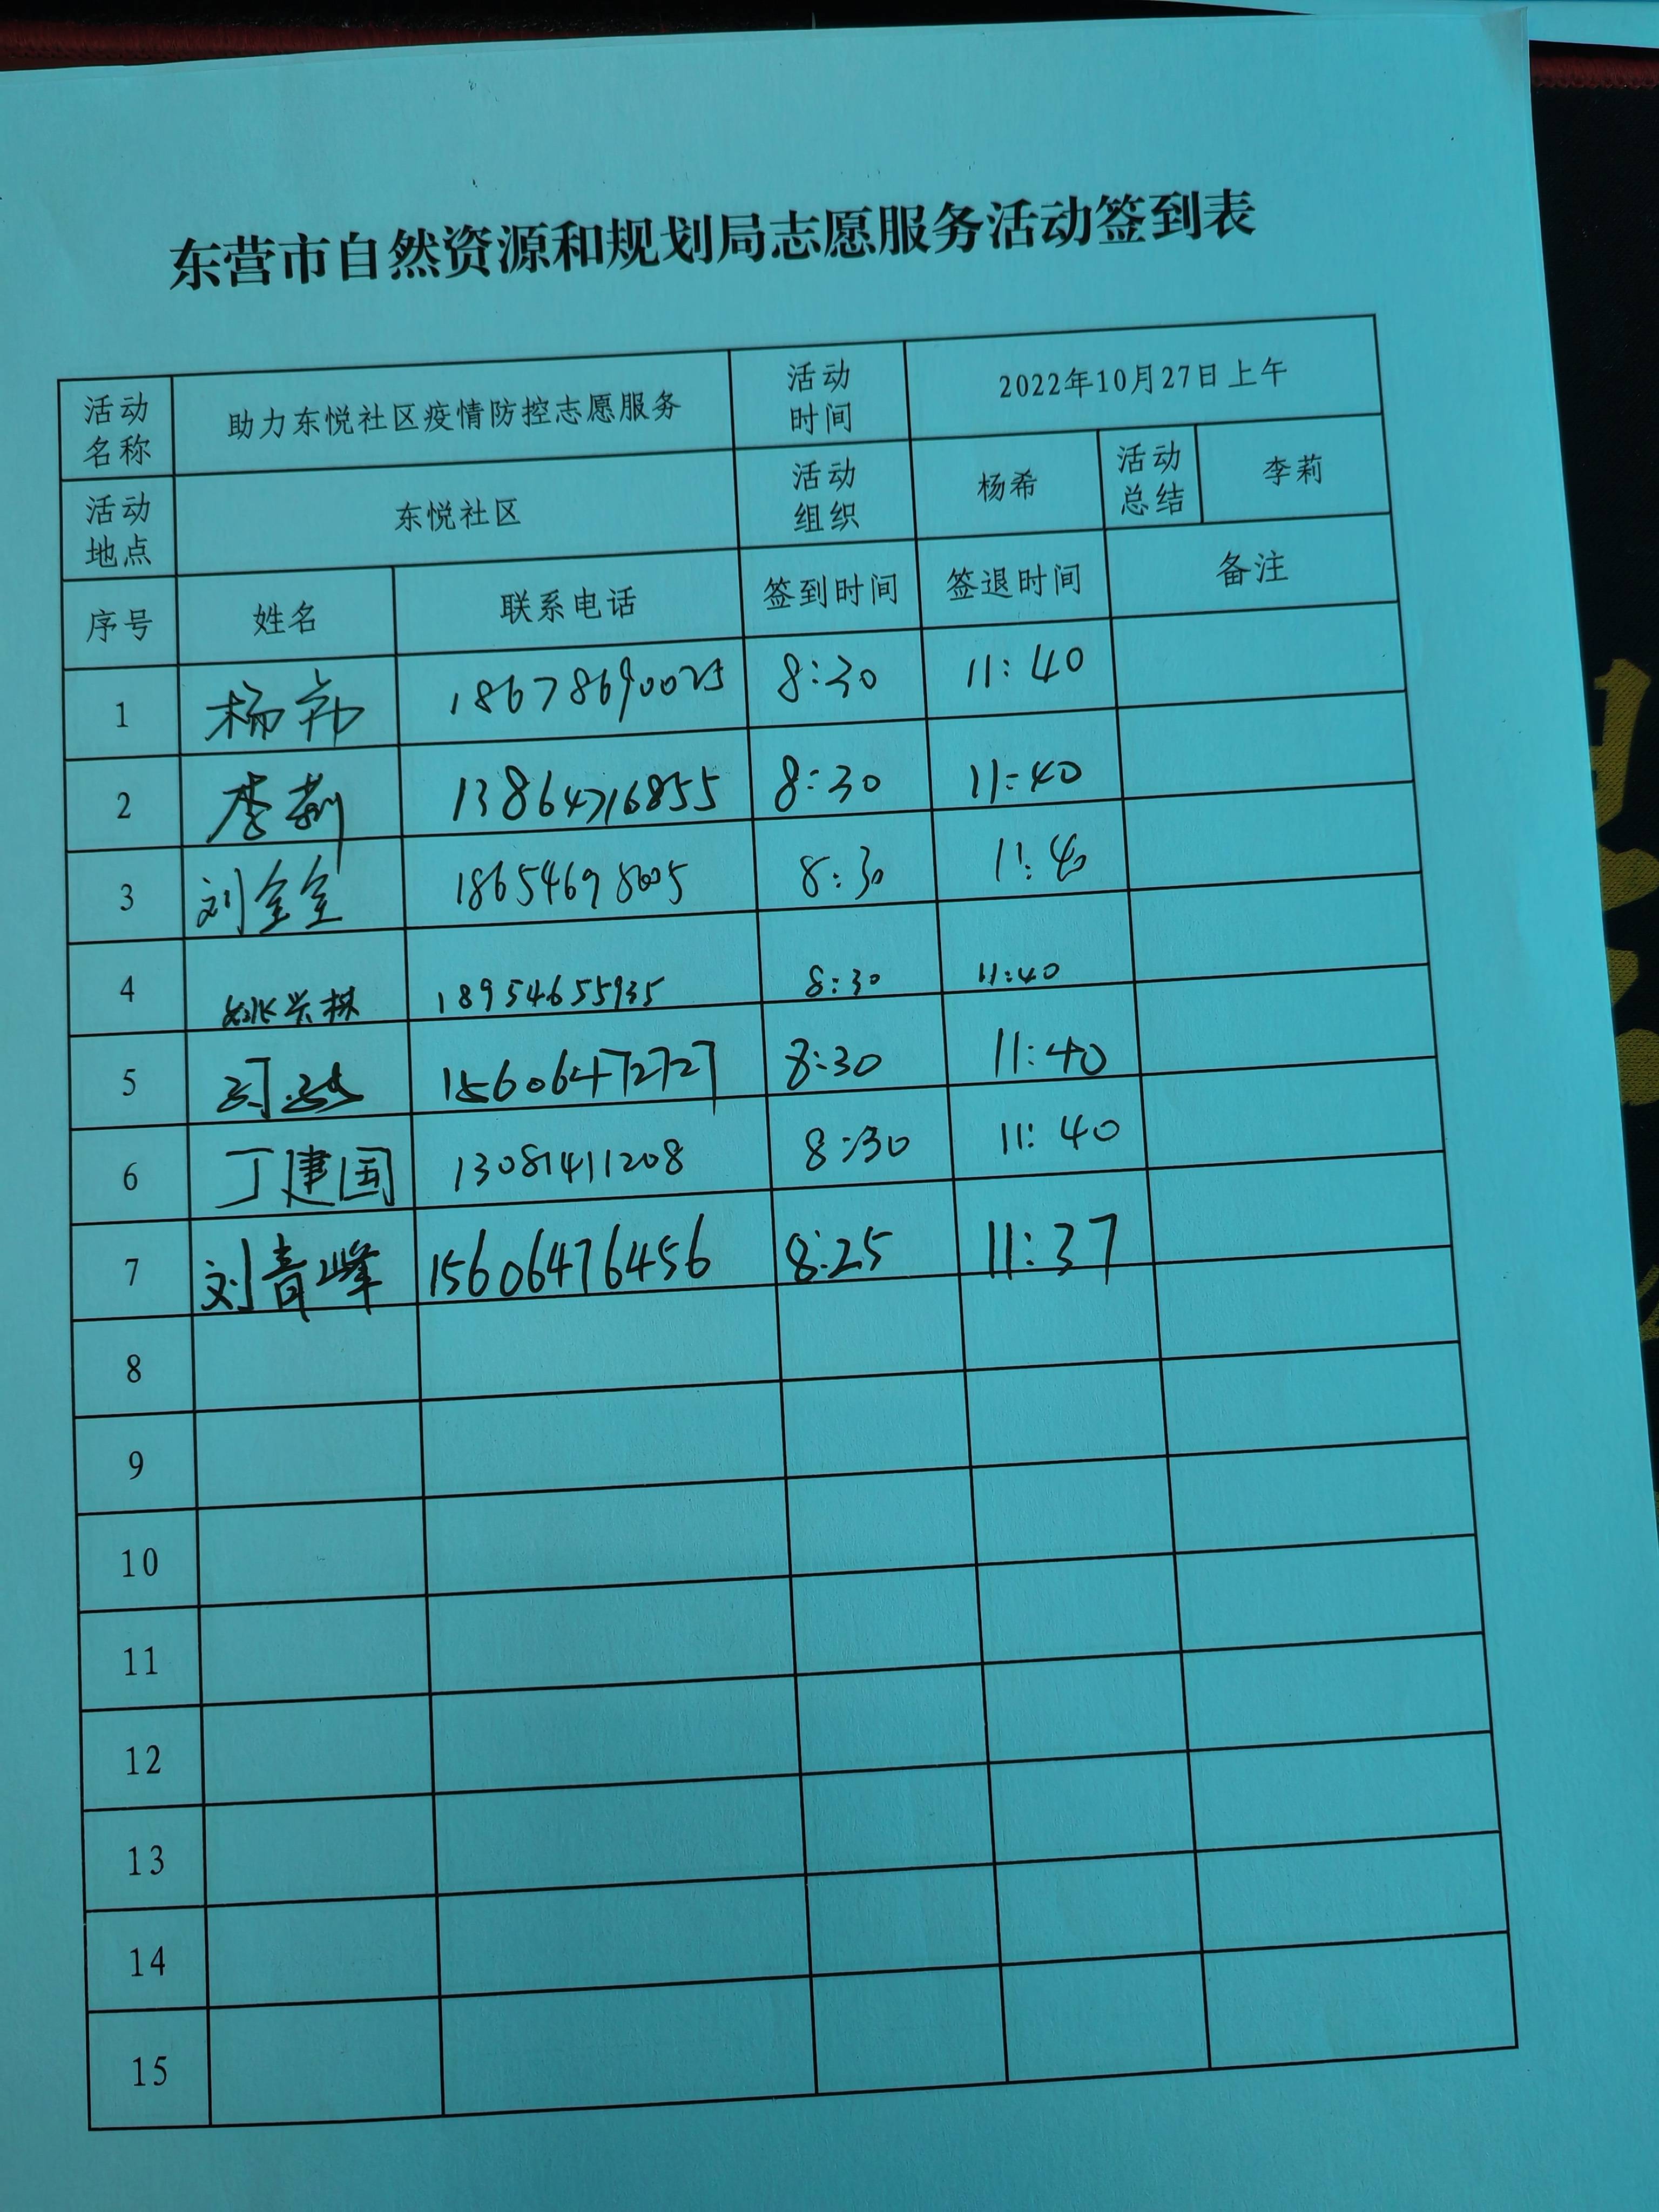 东营市自然资源和规划局志愿服务活动签到表
活动名称 助力东悦社区疫情防控志愿服务 活动时间 2022年10月27日上午
活动地点 东悦社区 活动组织 杨希 活动总结 李莉
序号 姓名 联系电话 签到时间 签退时间 备注
1 杨希 18678690025 8:30 11:40
2 李莉 13864716855 8:30 11:40
3 刘全全 18654698005 8:30 11:40
4 姚兴林 18954655935 8:30 11:40
5 15606472727 8:30 11:40
6 丁建国 13081411208 8:30 11:40
7 刘青峰 15606476456 8:25 11:37
8
9
10
11
12
13
14
15